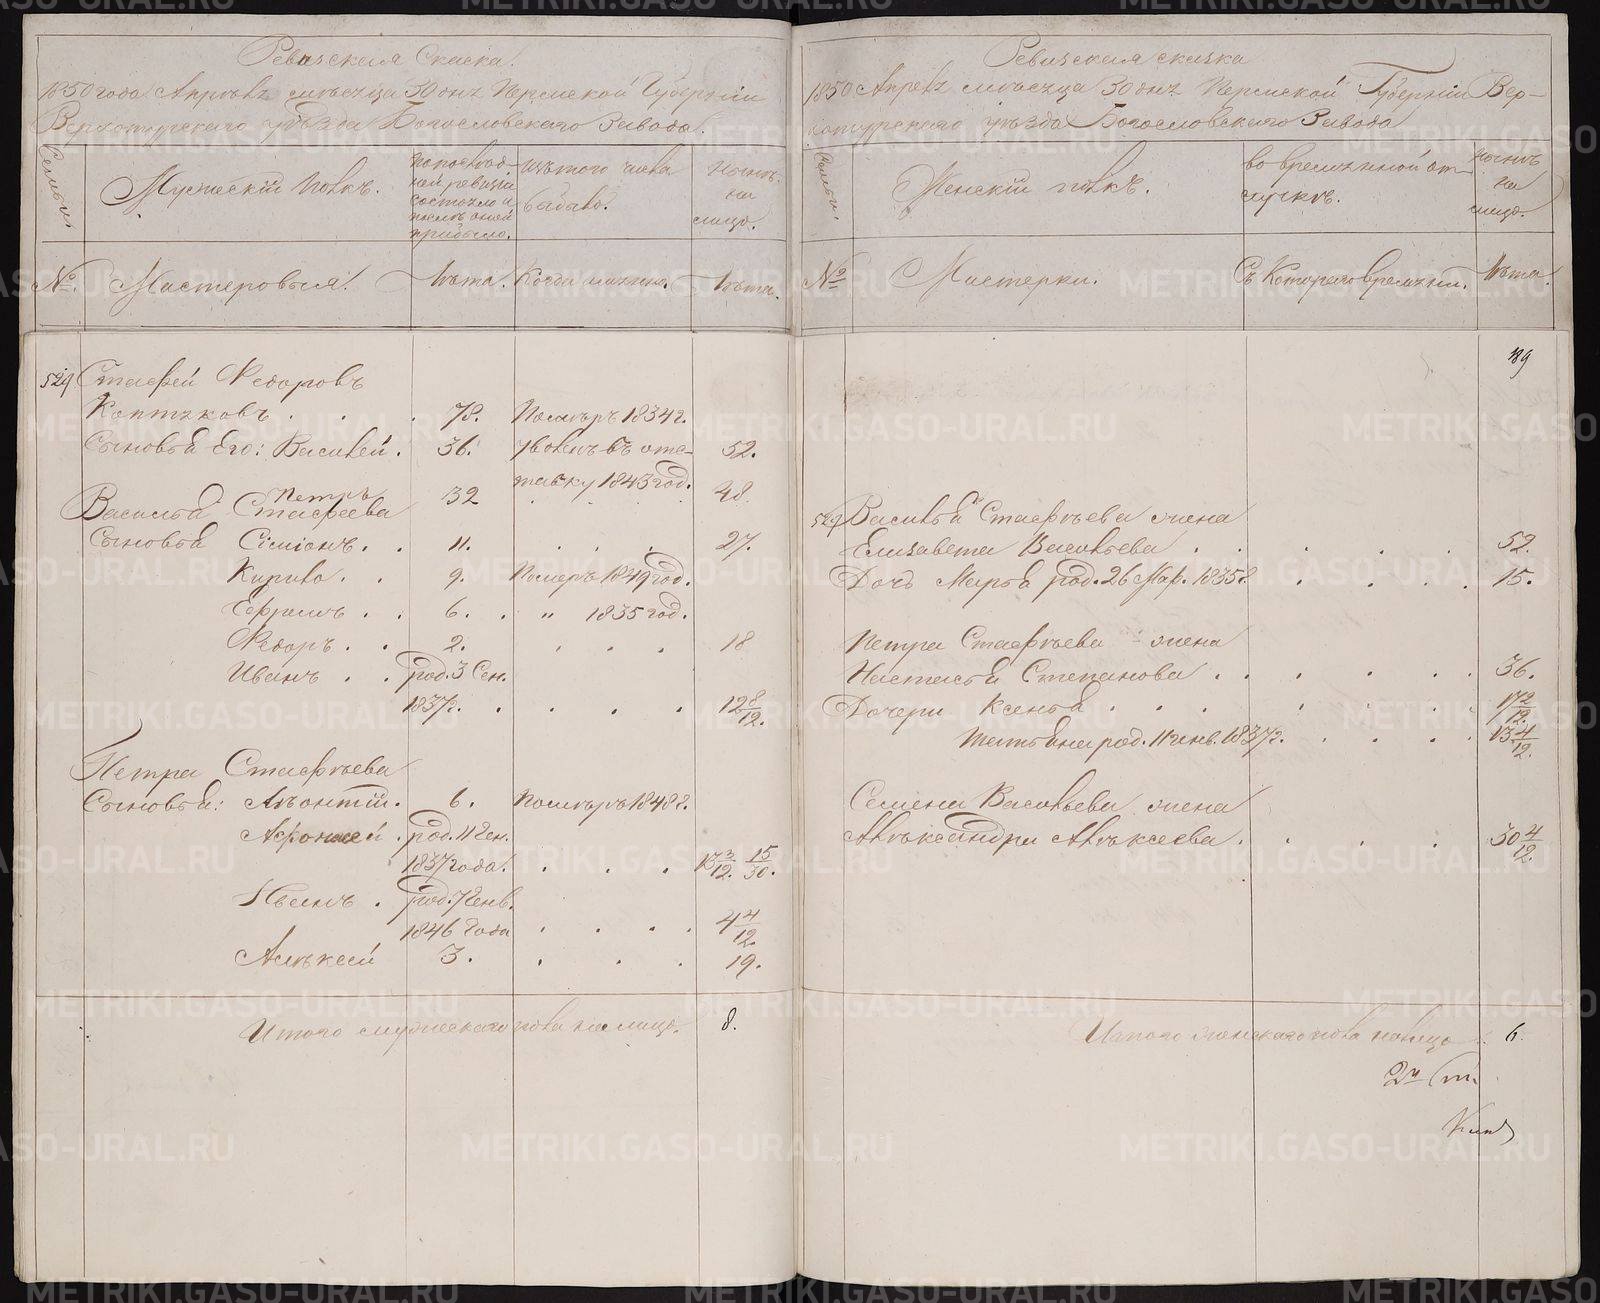 Ревизская Скаска.
1850 года Апреля месеца 30 дня Пермской Губерніи
Верхотурскаго уезда Богословскаго Завода.
Семьи.
Мужескій полъ.
По последней ревизіи состояло и после оной прибыло.
Изъ того числа выбыло.
Ныне на лицо.
№
Мастеровыя.
Лета.
Когда именно.
Лета.
529 Стафей Федоровъ
Коптяковъ . . . 78. Померъ 1834 г.
Сыновья Его: Василей . 36. Уволенъ въ отставку 1843 год. 52.
Петръ 32 . . . 48
Василья Стафеева
Сыновья Сімионъ . . 11. . . . 27.
Кирило . . 9. Померъ 1849 год.
Ефремъ . . 6. . " 1835 год.
Федоръ . . 2. . . . 18
Иванъ . . род. 3 Сен.
1837 г. . . . . . 12 8/12.
Петра Стафеева
Сыновья: Леонтій . 6. Померъ 1848 г.
Афонасей . род. 11 Ген.
1837 года. . . . 13 3/12. 15/30.
Иванъ . род. 7 Генв.
1846 Года . . . . 4 4/12.
Алексей 3. . . . 19.
Итого мужескаго пола на лицо. 8.
Ревизская сказка
1850 Апреля месеца 30 дня Пермской Губерніи Вер-
хотурскаго уезда Богословскаго Завода
Семьи.
Женскій полъ.
Во временной отлучке.
Ныне на лицо.
№
Мастерки.
Съ Котораго времени.
Лета.
89
529 Василья Стафеева жена
Елизавета Васильева . . . . . 52.
Дочь Марья род. 26 Мар. 1835 г. . . . . 15.
Петра Стафеева жена
Настасья Степанова . . . . . . 36.
Дочери Ксенья . . . . . . . 17 2/12.
Татьяна род. 11 Генв. 1837 г. . . . . 13 4/12.
Семена Васильева жена
Александра Алексеева . . . . 30 4/12.
Итого женскаго пола налицо 6.